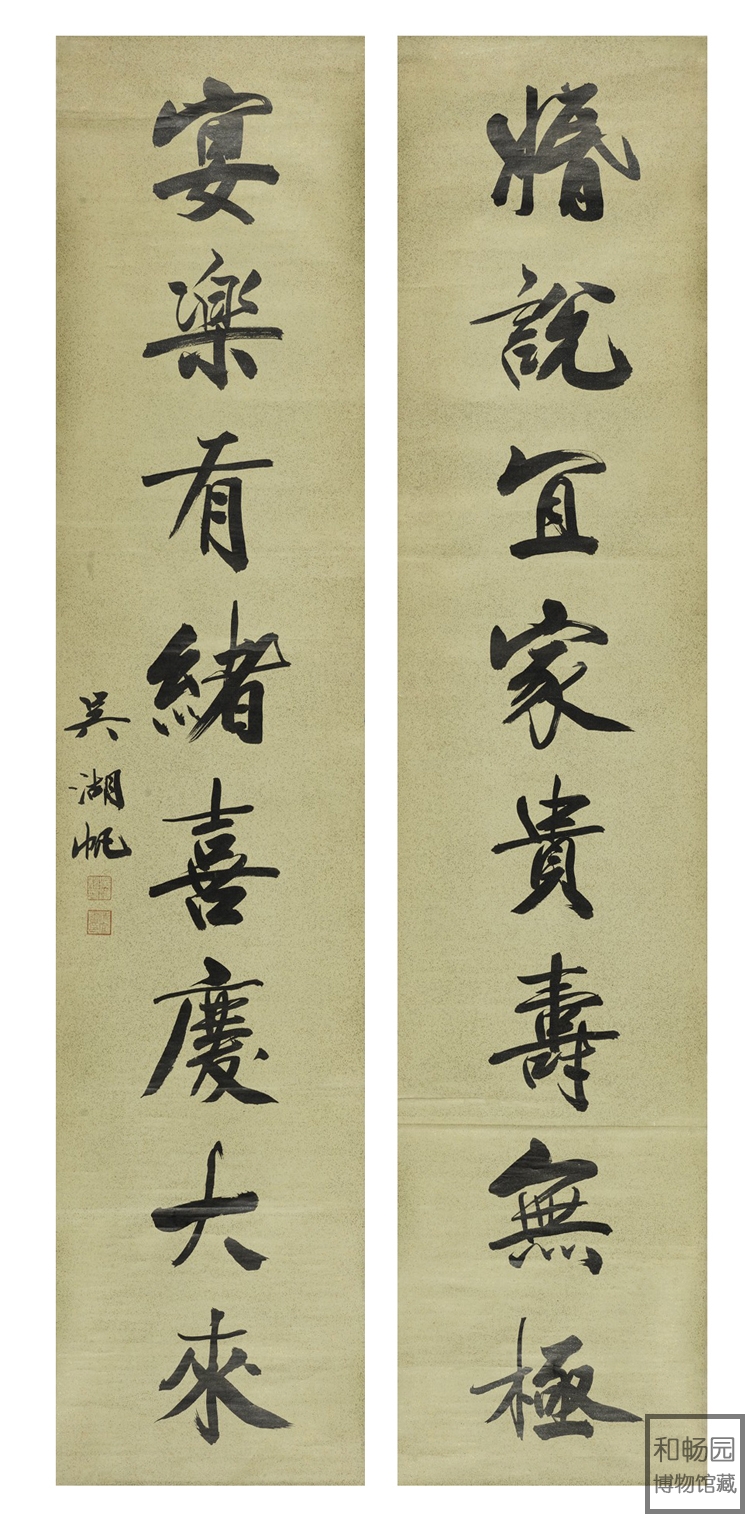 說宜家貴壽無極
宴樂有緒喜慶大來
吳湖帆
和畅园
博物馆藏